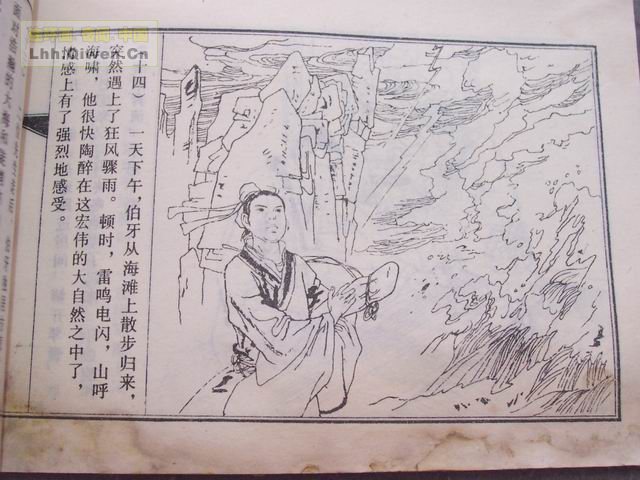 （十四） 一天下午，伯牙从海滩上散步归来，
突然遇上了狂风骤雨。顿时，雷鸣电闪，山呼
海啸，他很快陶醉在这宏伟的大自然之中了，
情感上有了强烈地感受。